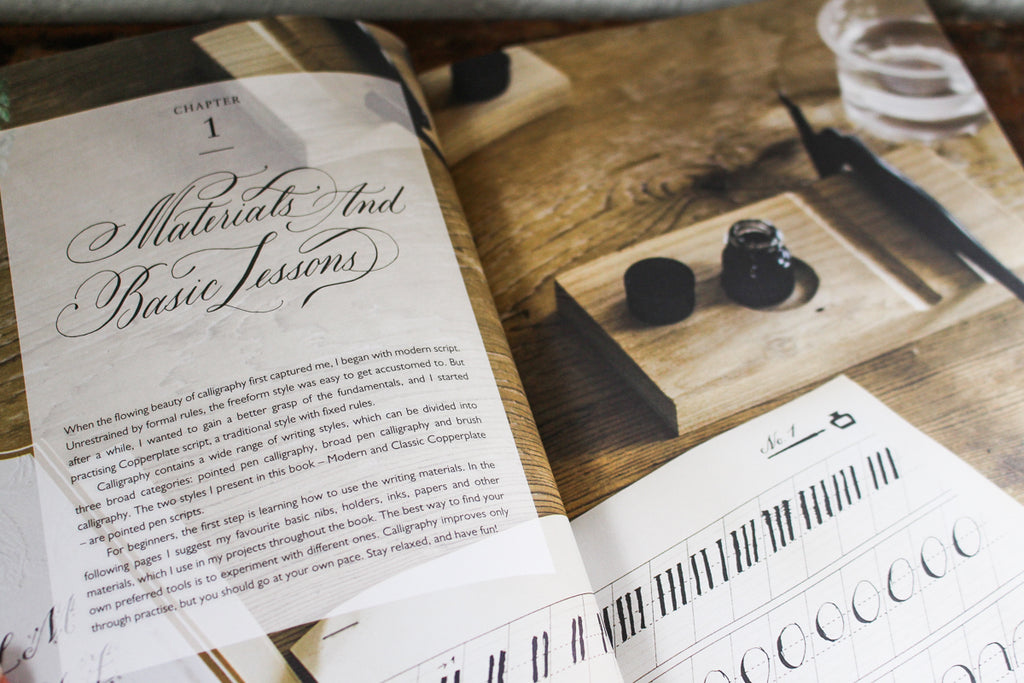 CHAPTER
1
Materials And
Basic Lessons
When the flowing beauty of calligraphy first captured me, I began with modern script.
Unrestrained by formal rules, the freeform style was easy to get accustomed to. But
after a while, I wanted to gain a better grasp of the fundamentals, and I started
practising Copperplate script, a traditional style with fixed rules.
Calligraphy contains a wide range of writing styles, which can be divided into
three broad categories: pointed pen calligraphy, broad pen calligraphy and brush
calligraphy. The two styles I present in this book – Modern and Classic Copperplate
– are pointed pen scripts.
For beginners, the first step is learning how to use the writing materials. In the
following pages I suggest my favourite basic nibs, holders, inks, papers and other
materials, which I use in my projects throughout the book. The best way to find your
own preferred tools is to experiment with different ones. Calligraphy improves only
through practise, but you should go at your own pace. Stay relaxed, and have fun!
No. 1